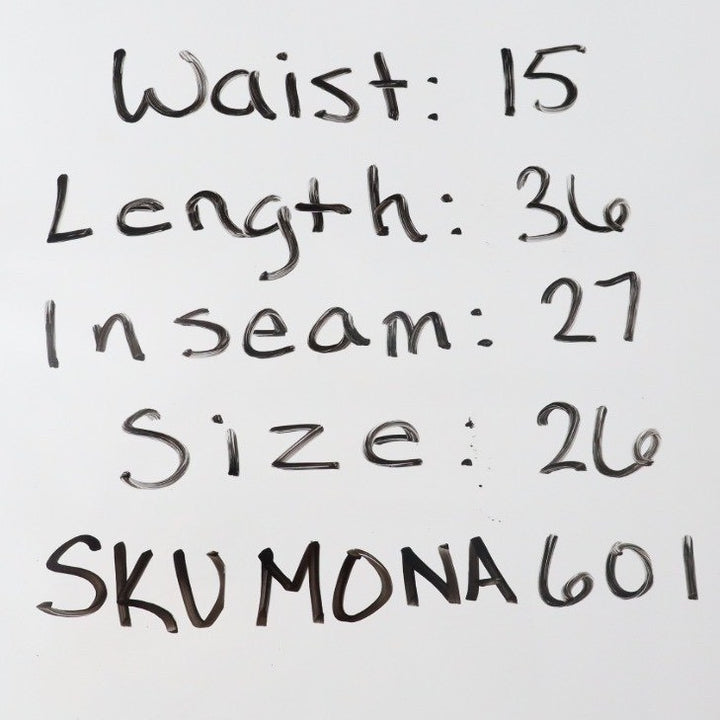 Waist: 15
Length: 36
Inseam: 27
Size: 26
SKU MONA601